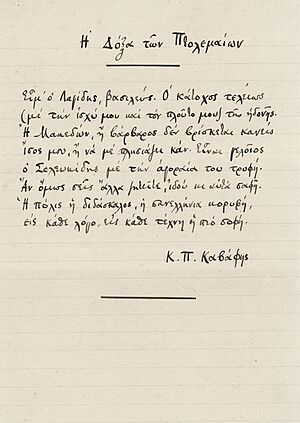 Η Δόξα των Πτολεμαίων
Είμ' ο Λαγίδης, βασιλεύς. Ο κάτοχος τελείως
(με την ισχύ μου και τον πλούτο μου) της ηδονής.
Ή Μακεδών, ή βάρβαρος δεν βρίσκεται κανείς
ίσος μου, ή να με πλησιάζει κάν. Είναι γελοίος
ο Σελευκίδης με την αγοραία του τρυφή.
Αν όμως σεις άλλα ζητείτε, ιδού κι αυτά σαφή.
Η πόλις η διδάσκαλος, η πανελλήνια κορυφή,
εις κάθε λόγο, εις κάθε τέχνη η πιο σοφή.
Κ. Π. Καβάφης